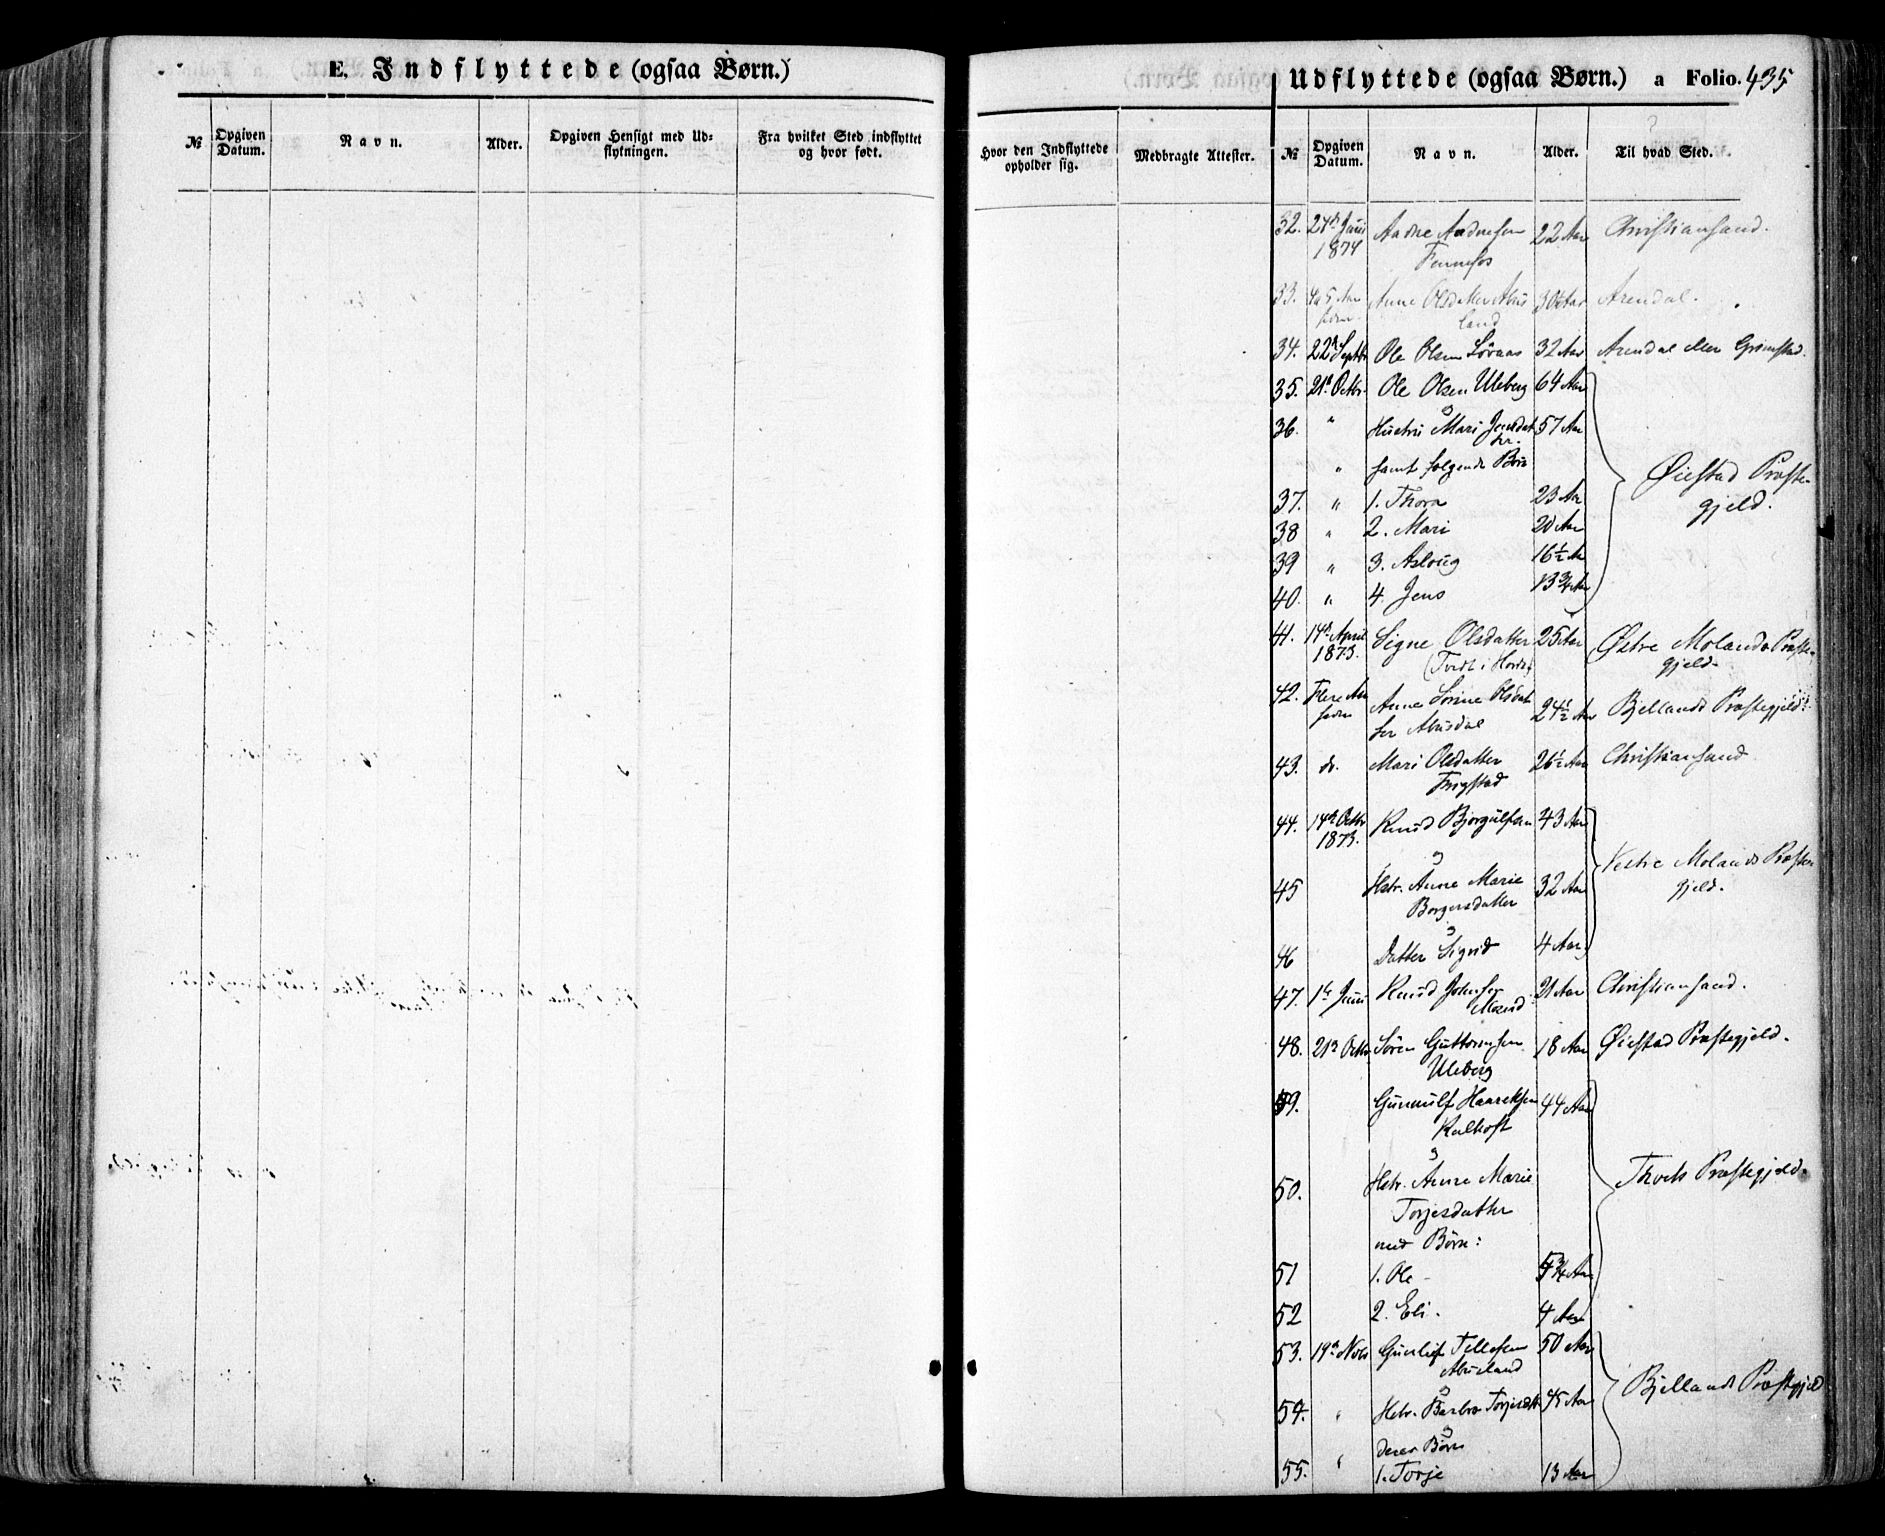 E. Indflyttede (ogsaa Børn.)
№
Opgiven Datum.
Navn.
Alder.
Opgiven Hensigt med Udflytningen.
Fra hvilket Sted indflyttet og hvor født.
Hvor den Indflyttede opholder sig.
Medbragte Attester.
Udflyttede (ogsaa Børn.) a Folio. 435
№
Opgiven Datum.
Navn.
Alder.
Til hvad Sted.
32. 24de Juni 1874 Aadne Aadnesen Fennefos 22 Aar Christiansand.
33. Anne Olsdatter Abusland Arendal.
34. 22de Septbr Ole Olsen Løvaas 32 Aar Arendal eller Grimstad.
35. 21de Octbr. Ole Olsen Uleberg 64 Aar
og
36. " Hustru Mari Jensdatter. 57 Aar
" samt følgende Børn
Øiestad Præstegjeld.
37. " 1. Thora 23 Aar
38 " 2. Mari 20 Aar
39 " 3. Asloug 16½ Aar
40. " 4. Jens 13¾ Aar
41. 14de April 1873. Signe Olsdatter 25 Aar Østre Molands Præstegjeld.
42. Flere Aar siden Anne Sørine Olsdatter Abusdal 24½ Aar Bjellands Præstegjeld.
43. do. Mari Olsdatter Frigstad 26½ Aar Christiansand
44. 14de Octbr 1873. Knud Bjorgulfsen 43 Aar
og
Vestre Molands Præstegjeld.
45 Hstr. Anne Marie Borgersdatter 32 Aar
og
46 Datter Sigrid 4 Aar
47. 1ste Juni Knud Johnsen Mosend 21 Aar Christiansand.
48. 21de Octbr Søren Guttormsen Uleberg 18 Aar Øiestad Præstegjeld.
49. Gunnulf Haareksen Kalhoft 44 Aar
og
50. Hstr. Anne Marie Torjesdatter
med Børn:
Præstegjeld.
51 1. Ole
52 2. Eli. 4 Aar
53. 19de Novb Gunlief Tellefsen Abusland 50 Aar
og
Bjellands Præstegjeld
54. " Hstr. Barbro Torjesdtr 45 Aar
og
" deres Børn
55. 1. Torje 13 Aar